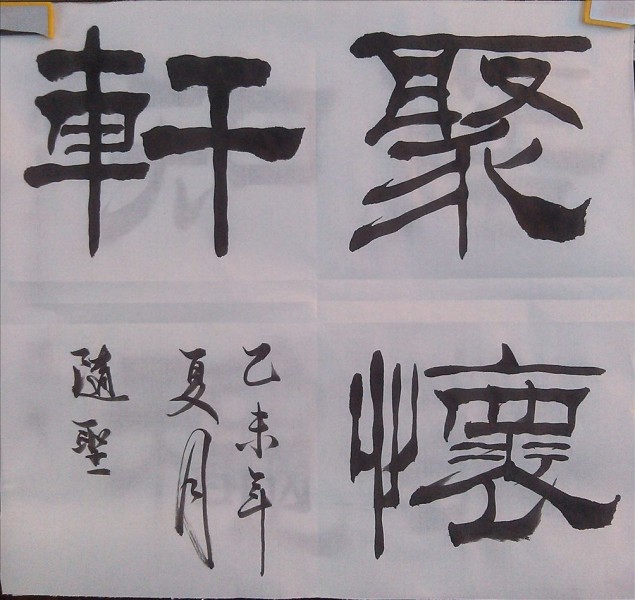 聚懷
軒
乙未年
夏月
隨聖